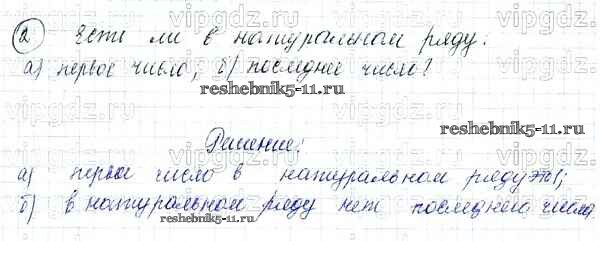 2 Есть ли в натуральном ряду:
а) первое число; б) последнее число?
reshebnik5-11.ru
reshebnik5-11.ru
Решение:
а) первое число в натуральном ряду это 1;
б) в натуральном ряду нет последнего числа
reshebnik5-11.ru
vipgdz.com